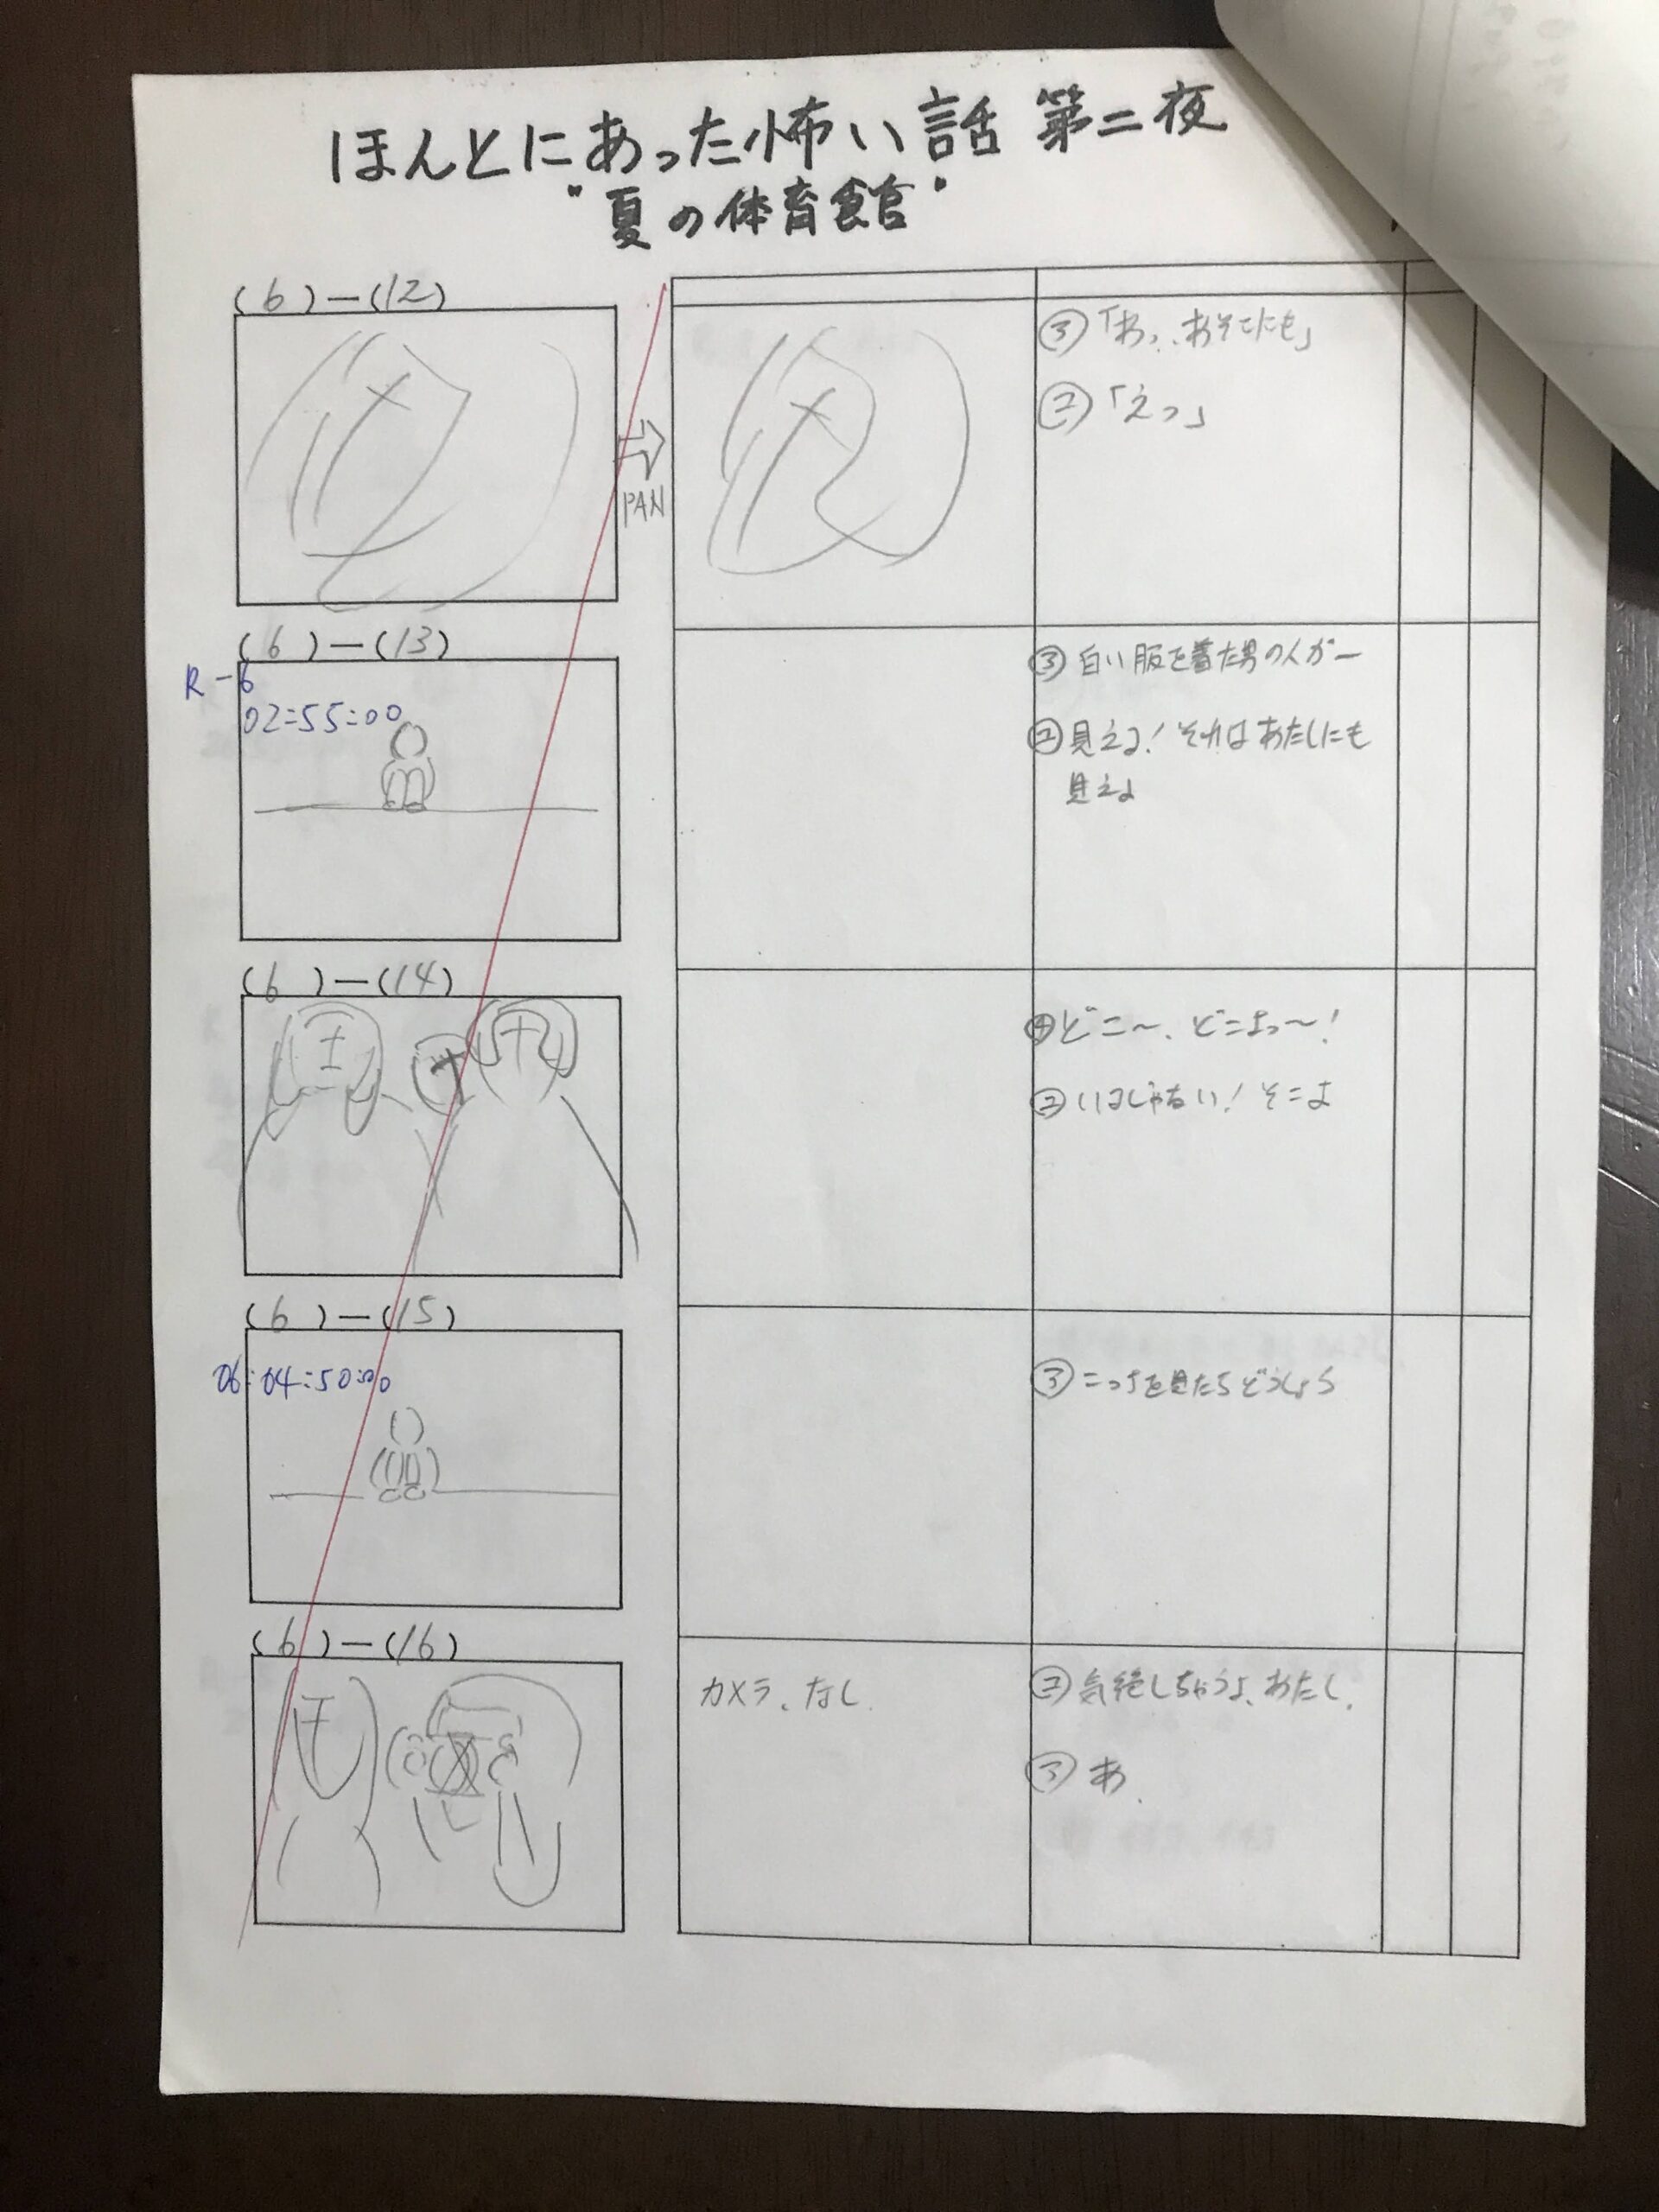 ほんとにあった怖い話 第二夜
"夏の体育館"
(6)—(12)
PAN
③「あっ、、あそこにも」
②「えっ」
(6)—(13)
R-6
02:55:00
③白い服を着た男の人がー
②見える！それはあたしにも
見えるよ
(6)—(14)
④どこ〜、どこよっ〜！
②いるじゃない！そこよ
(6)—(15)
06:04:50:00
③こっちを見たらどうしよう
(6)—(16)
カメラ、なし.
②気絶しちゃうよ、あたし.
③あ.